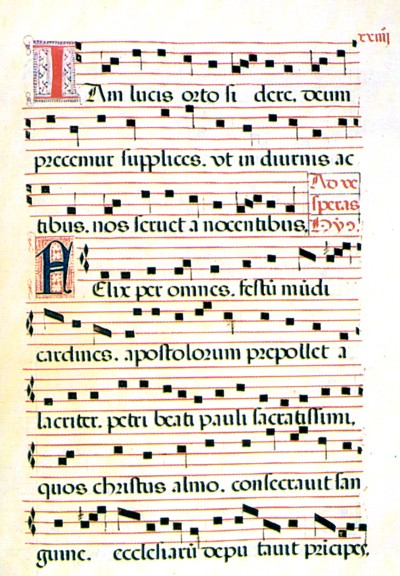 xxiiij
Iam lucis orto si dere. deum
precemur supplices. vt in diurnis ac
tibus. nos seruet a nocentibus.
Ad ve
speras
Hỹỹ.
Felix per omnes. festũ mũdi
cardines. apostolorum prepollet a
lacriter. petri beati pauli sacratissimi,
quos christus almo. consecrauit san
guine. ecclesiarũ depu tauit prĩcipes,